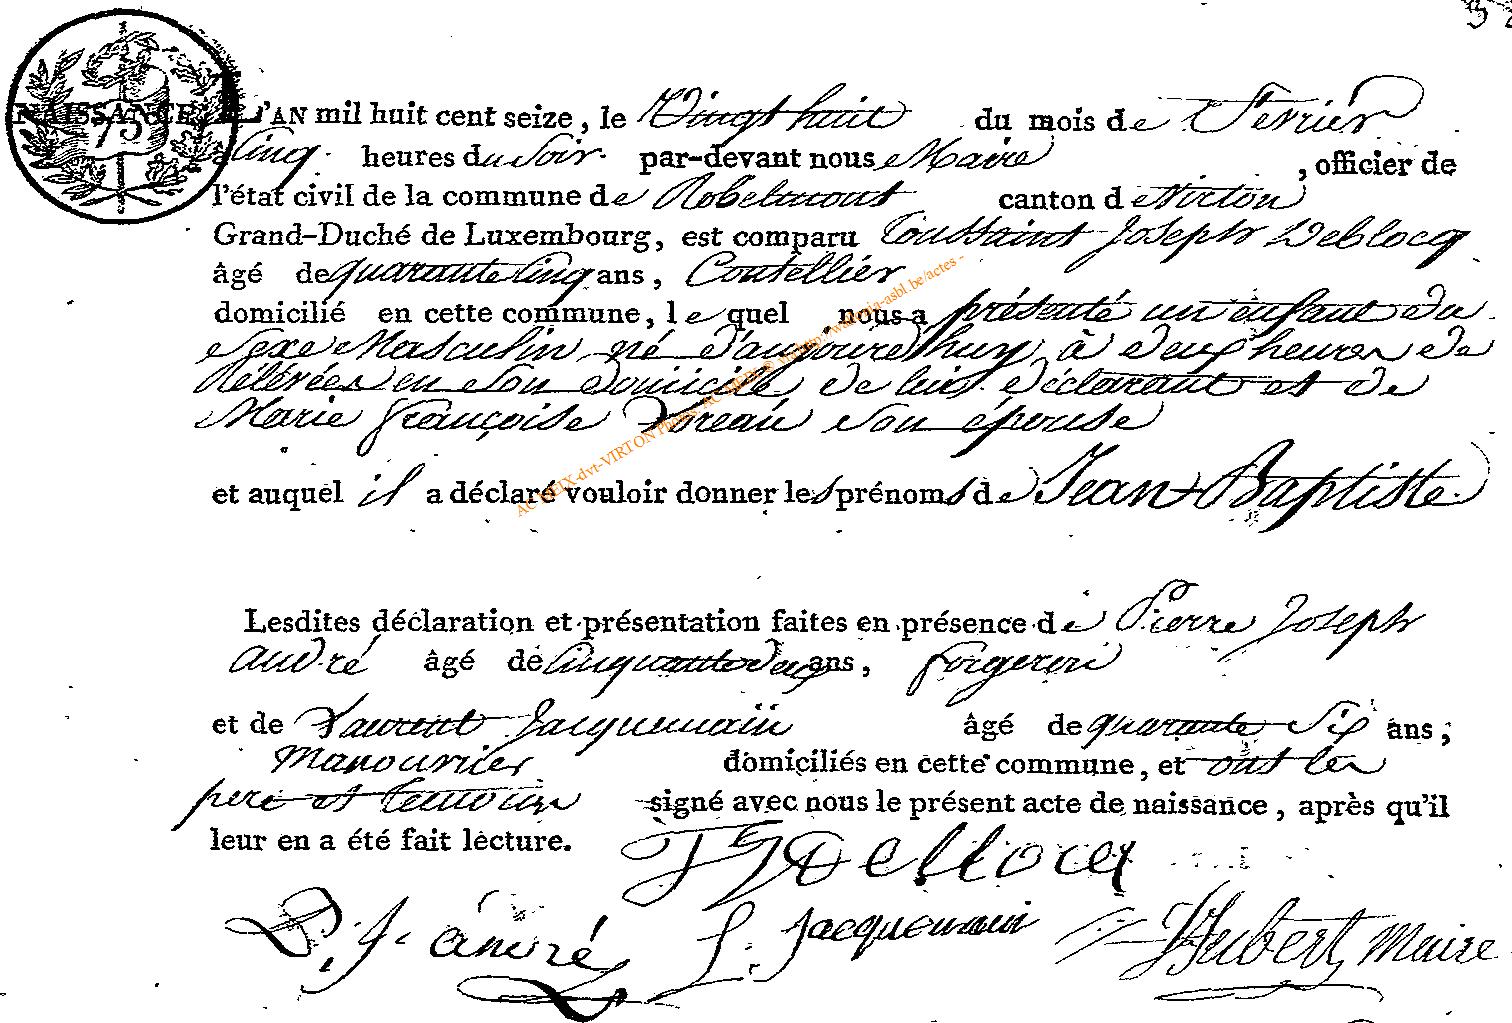 NAISSANCE. L'AN mil huit cent seize, le Vingt huit du mois de Fevrier
75
a cinq heures du Soir par-devant nous Maire , officier de
l'état civil de la commune de Robelmont canton de Virton
Grand-Duché de Luxembourg, est comparu Toussaint Joseph Deblocq
âgé de quarante cinq ans, Coutellier
domicilié en cette commune, le quel nous a présenté un enfant du
Sexe Masculin né d'aujourd'huy à deux heures de
Relevées en son domicile de lui déclarant et de
Marie françoise Moreau son épouse
et auquel il a déclaré vouloir donner les prénoms de Jean Baptiste
Lesdites déclaration et présentation faites en présence de Pierre Joseph
andré âgé de cinquante deux ans, forgeron
et de Laurent Jacquemain âgé de quarante Six ans;
Manouvrier domiciliés en cette commune, et ont les
pere et temoins signé avec nous le présent acte de naissance, après qu'il
leur en a été fait lecture.
P. J. andré L. Jacquemain Hubert Maire